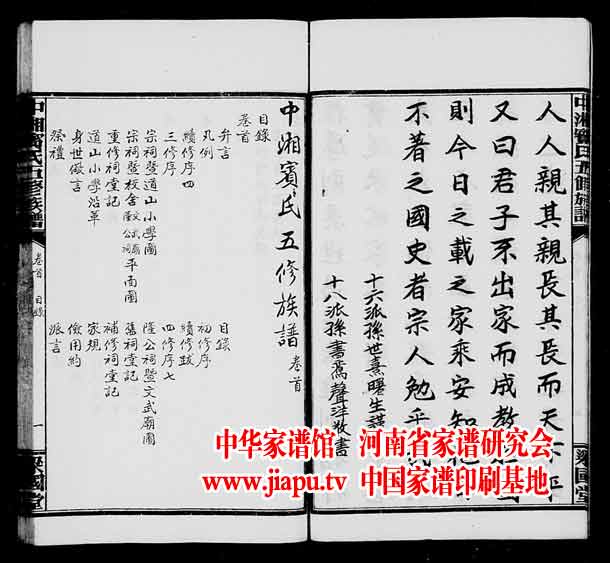 中湘賓氏五修族譜
人人親其親長其長而天下平
又曰君子不出家而成教
國
則今日之載之家乘安知他
不著之國史者宗人勉乎哉
十六派孫世熹曙生謹
十八派孫書鴬聲洋敬書
粲國堂
中湘賓氏五修族譜 卷首
目錄
卷首
弁言
目錄
凡例
初修序
續修序四
續修跋
三修序
四修序七
宗祠暨道山小學圖
隆公祠暨文武廟圖
宗祠暨校舍
平面圖
舊祠堂記
重修祠堂記
補修祠堂記
道山小學沿革
家規
身世儆言
儉用約
祭禮
派言
中湘賓氏五修族譜
卷首 目錄
一
粲國堂
中华家谱馆 河南省家谱研究会
www.jiapu.tv 中国家谱印刷基地